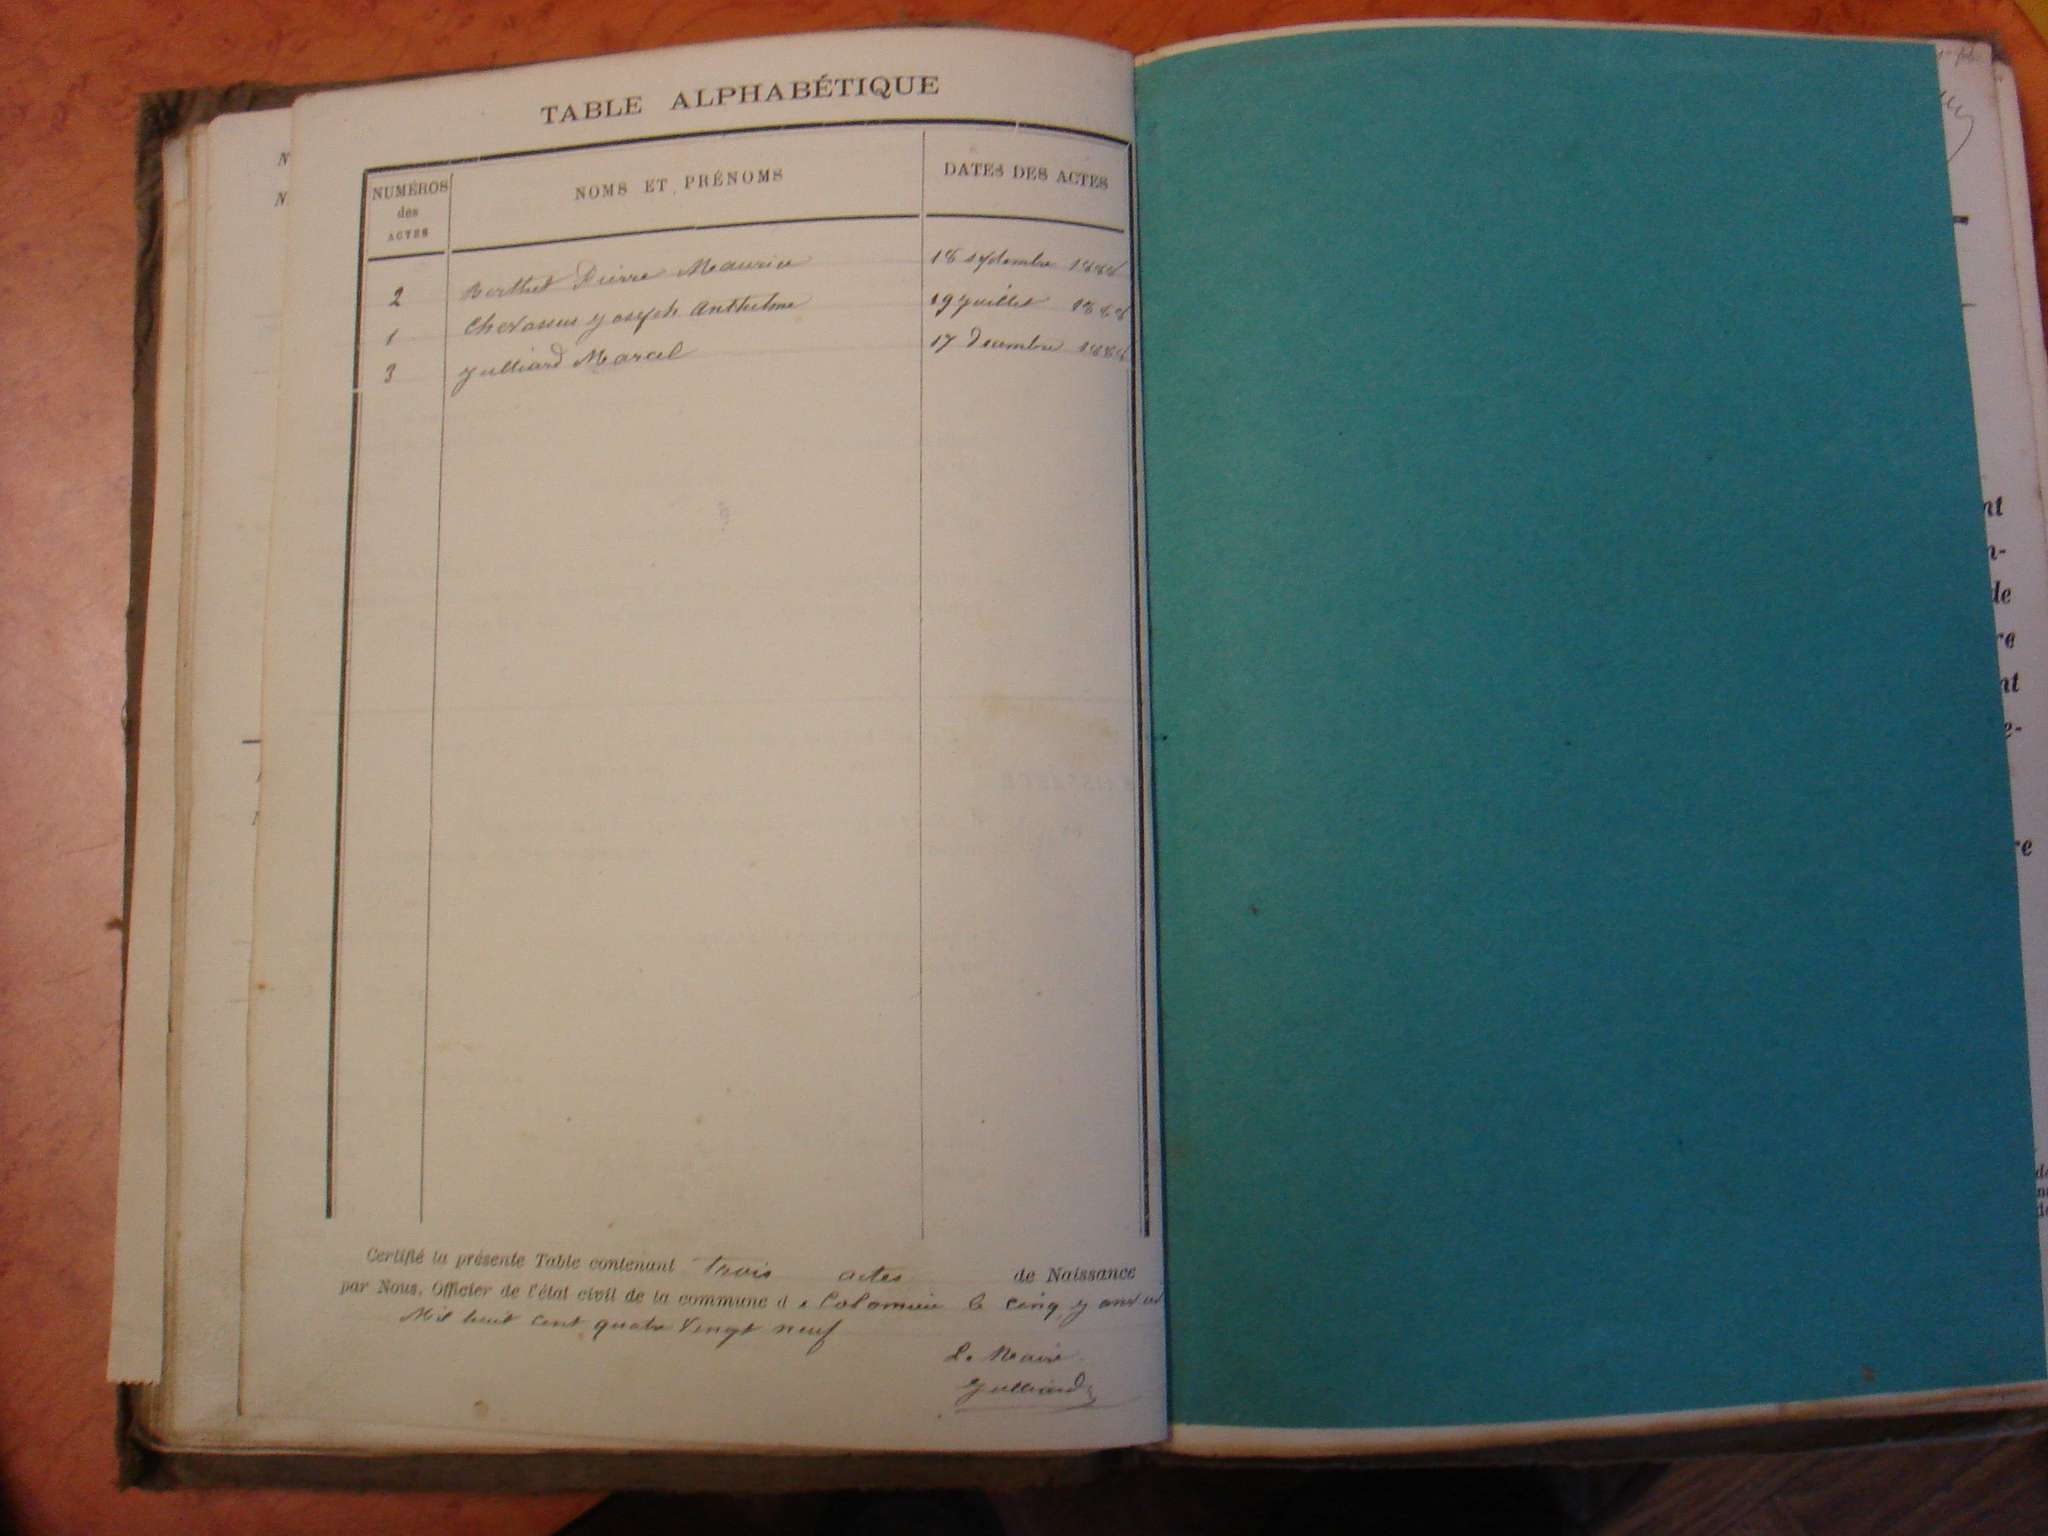 TABLE ALPHABÉTIQUE
NUMÉROS des ACTES NOMS ET PRÉNOMS DATES DES ACTES
2 Berthet Pierre Maurice 18 septembre 1888
1 Chevassus Joseph Anthelme 19 juillet 1888
3 Julliard Marcel 17 Decembre 1888
Certifié la présente Table contenant Trois actes de Naissance
par Nous, Officier de l'état civil de la commune d e le cinq Janvier
Mil huit cent quatre Vingt neuf
Le Maire
Julliard
nt
n-
de
re
nt
e-
re